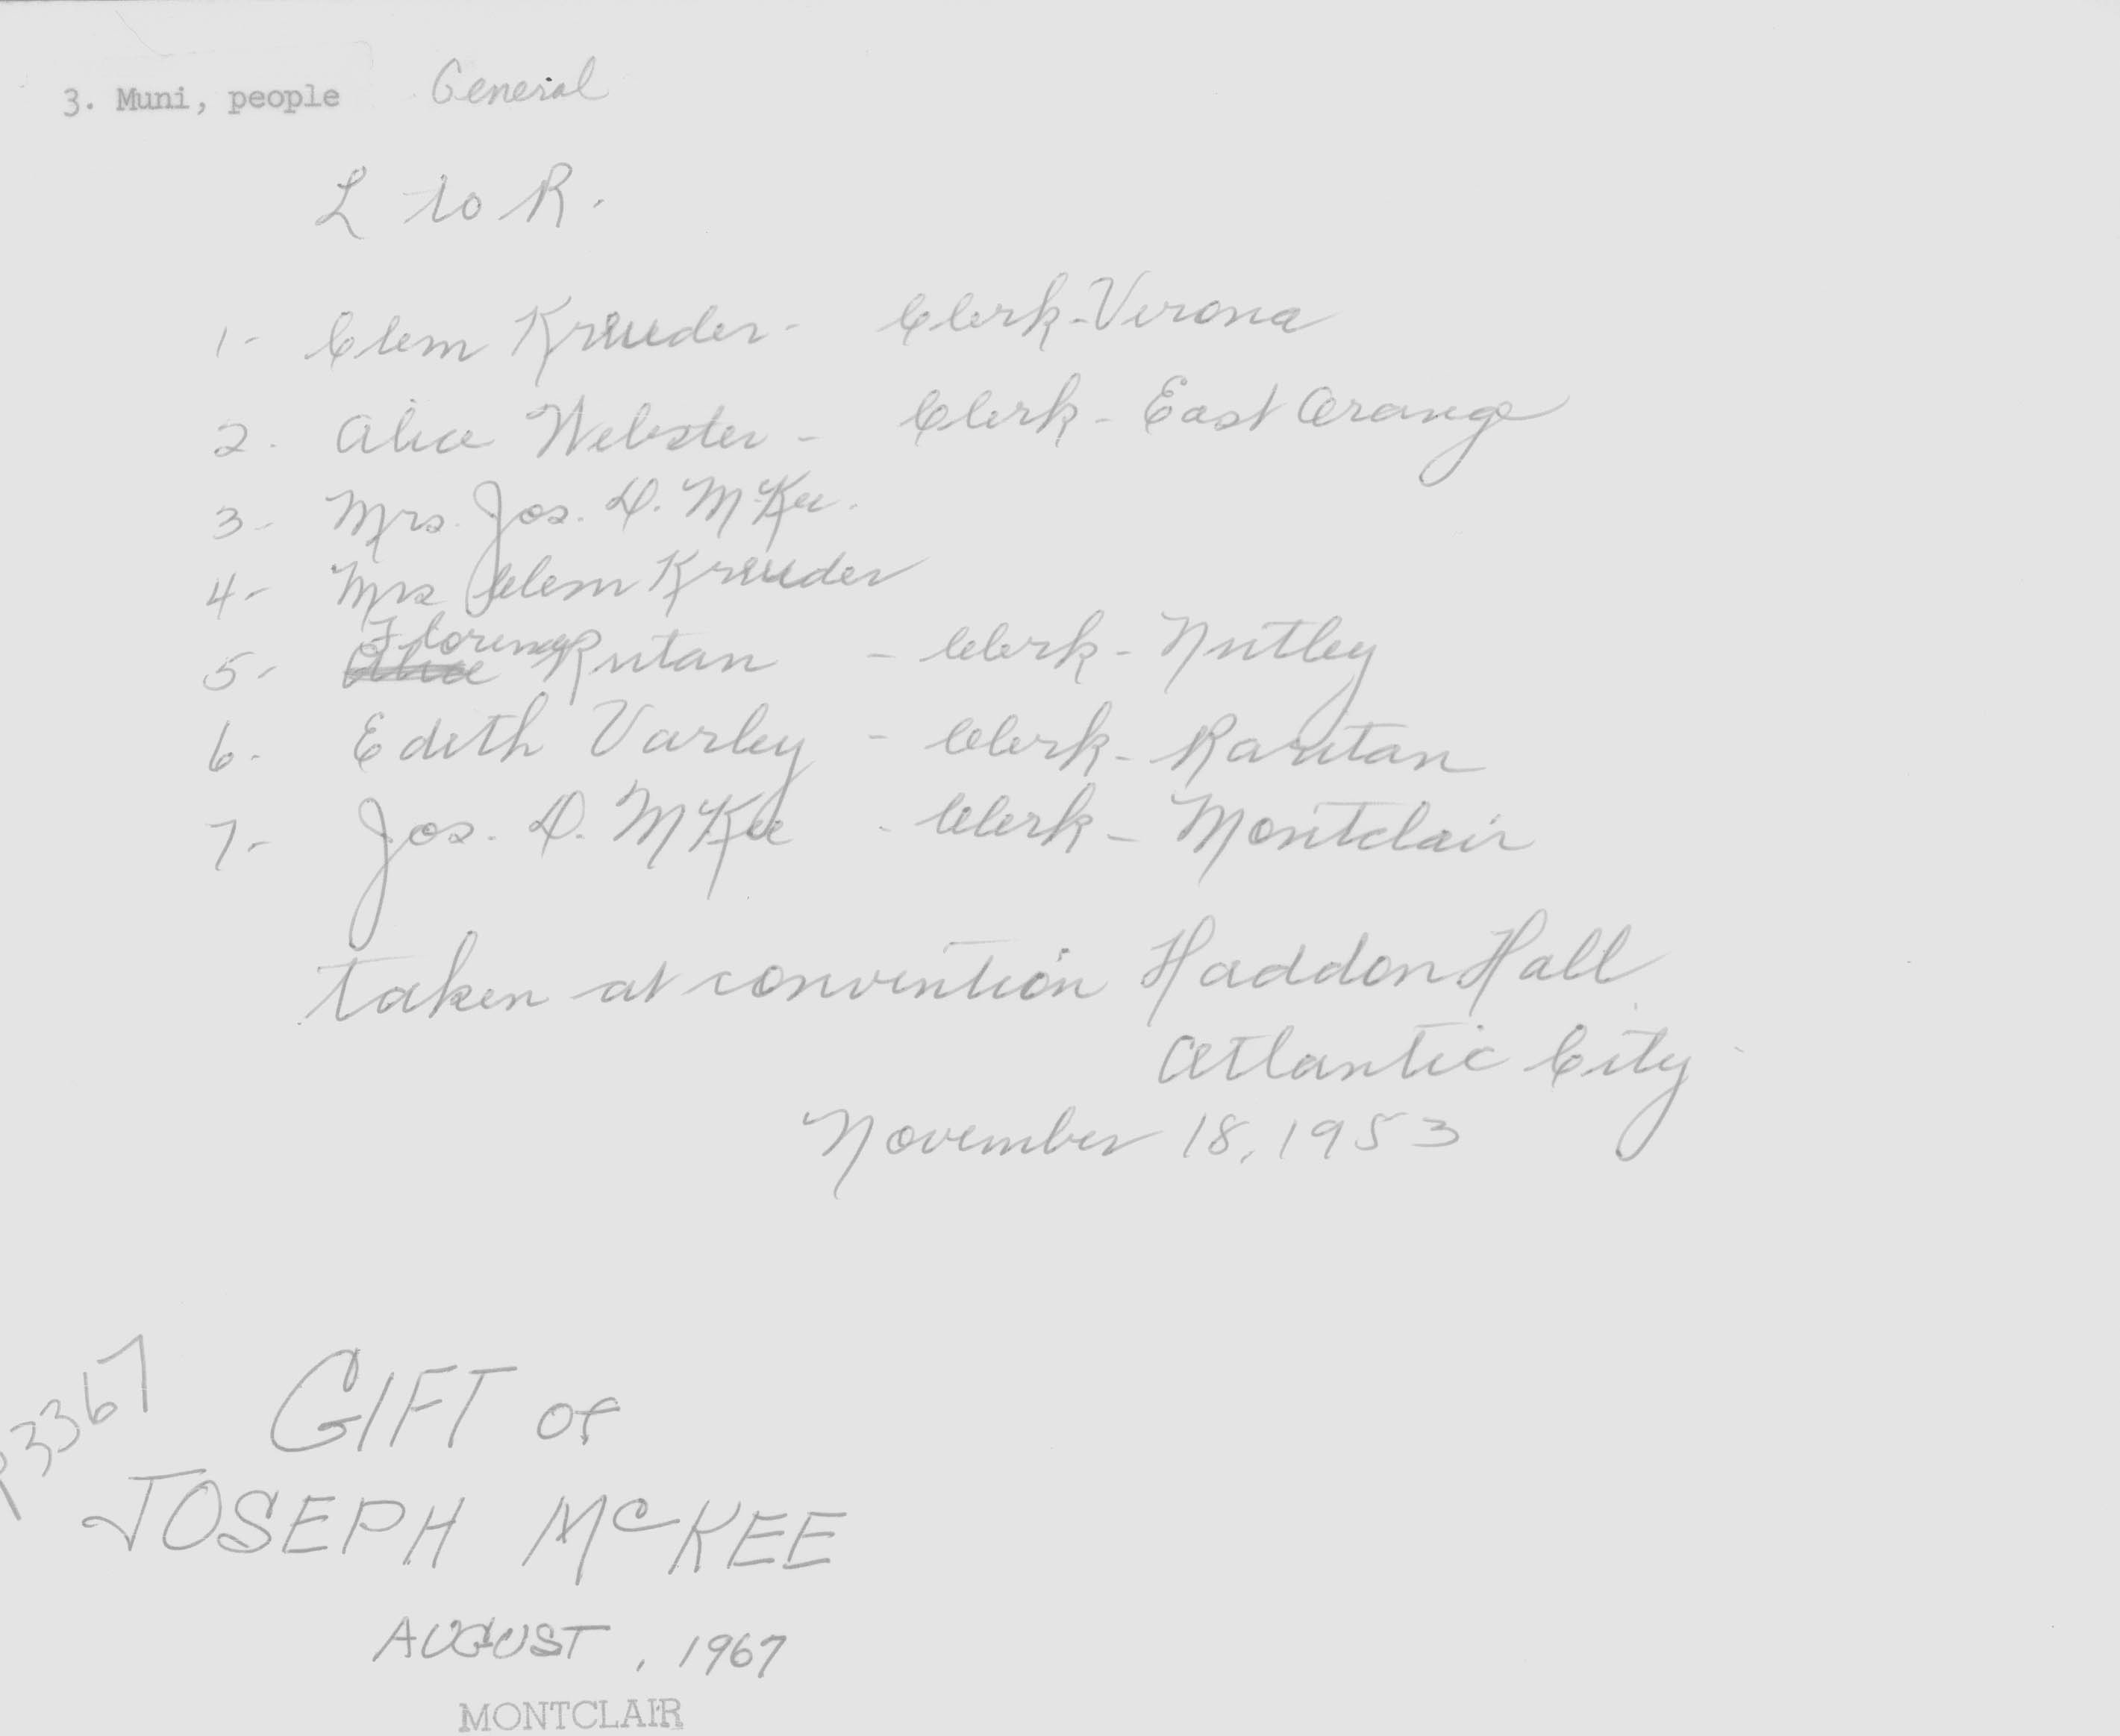 3. Muni, people General
L to R.
1- Clem Kreuder - Clerk - Verona
2. Alice Webster - Clerk - East Orange
3- Mrs. Jos. D. McKee.
4- Mrs Clem Kreuder
5- Florence Rutan - Clerk - Nutley
6- Edith Varley - Clerk - Raritan
7- Jos. D. McKee - Clerk - Montclair
taken at convention Haddon Hall
Atlantic City
November 18, 1953
3367
GIFT OF
JOSEPH McKEE
AUGUST, 1967
MONTCLAIR